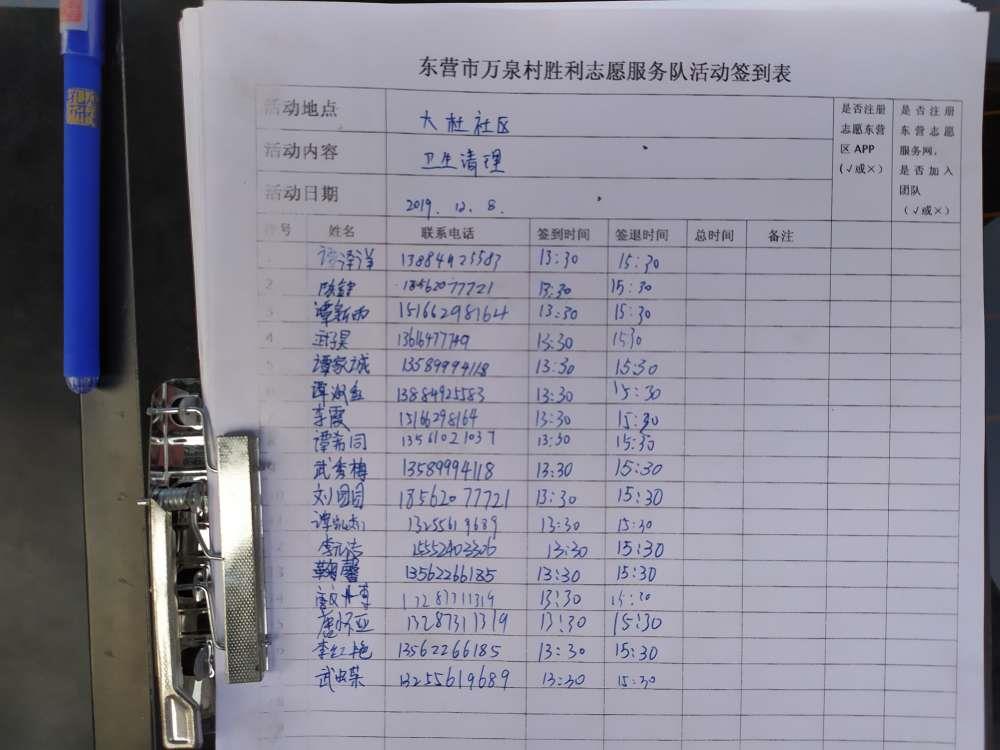 东营市万泉村胜利志愿服务队活动签到表
活动地点 大杜社区
是否注册志愿东营区 APP (√或×)
是否注册东营志愿服务网，是否加入团队 (√或×)
活动内容 卫生清理
活动日期 2019.12.8.
号 姓名 联系电话 签到时间 签退时间 总时间 备注
1 谭泽洋 13884925583 13:30 15:30
2 18562077721 13:30 15:30
3 谭新雨 15166298164 13:30 15:30
4 13616477749 13:30 15:30
5 谭家城 13589994118 13:30 15:30
13884925583 13:30 15:30
李霞 15166298164 13:30 15:30
谭希同 13561021037 13:30 15:30
武秀梅 13589994118 13:30 15:30
刘圆圆 18562077721 13:30 15:30
13255619689 13:30 15:30
15552403306 13:30 15:30
13562266185 13:30 15:30
13:30 15:30
唐怀亚 13287311319 13:30 15:30
李红艳 13562266185 13:30 15:30
13255619689 13:30 15:30